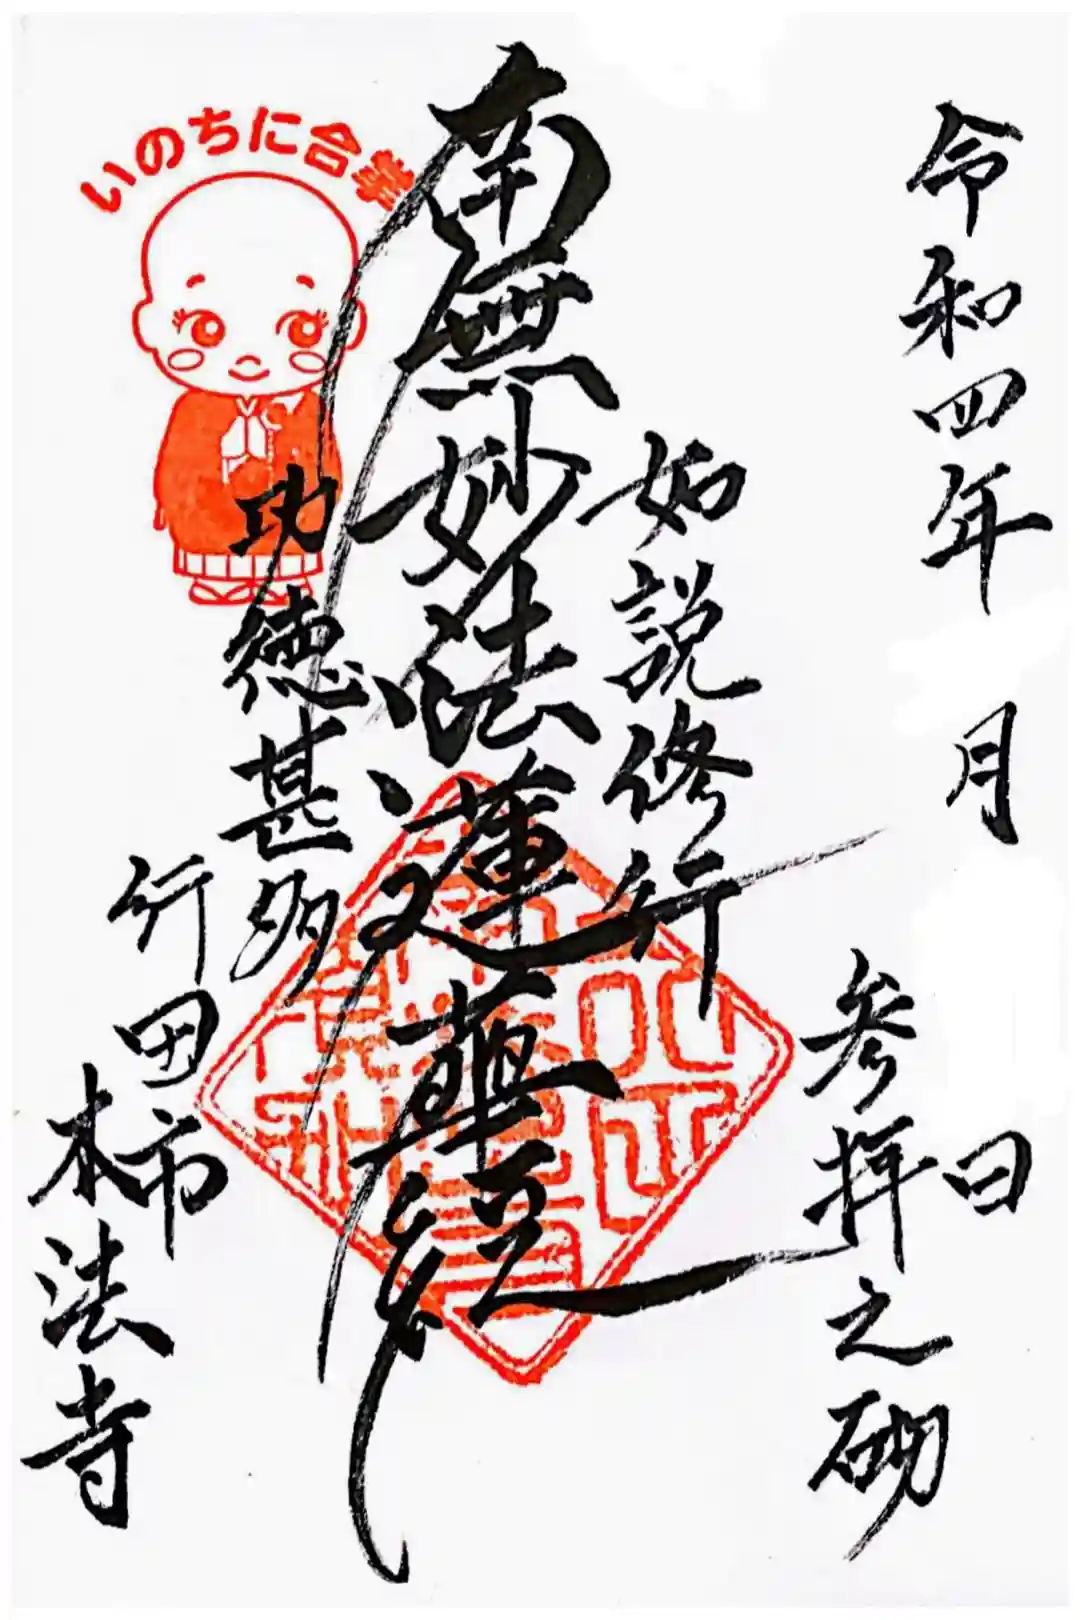 令和四年 月 日
参拝之砌
如説修行
南無妙法蓮華経
功徳甚多
いのちに合掌
行田市
本法寺